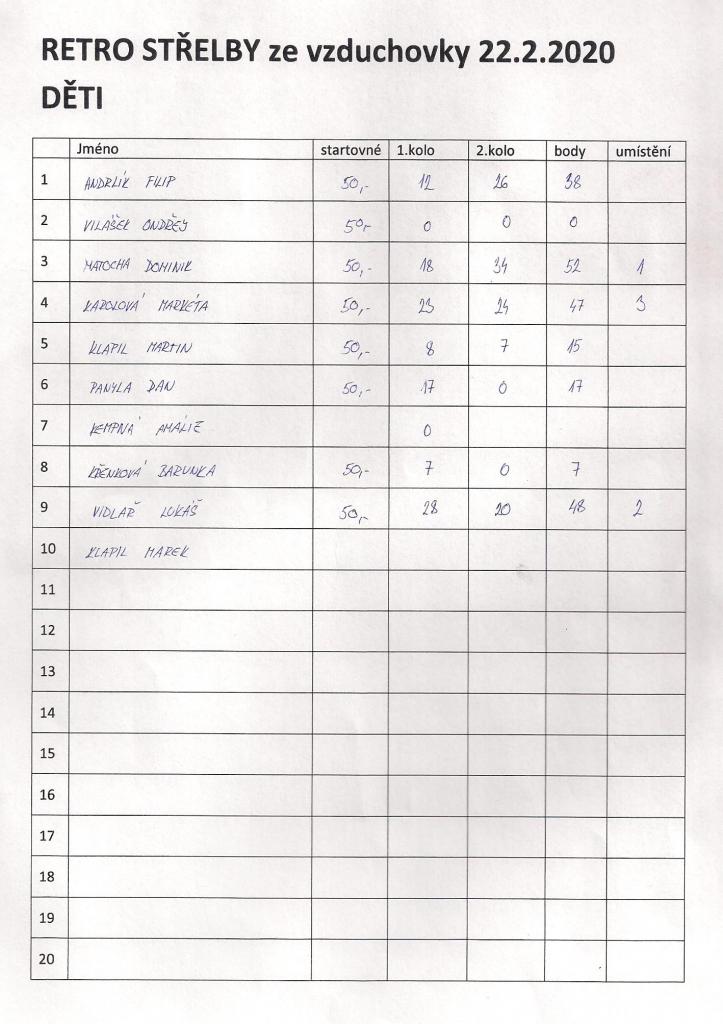 RETRO STŘELBY ze vzduchovky 22.2.2020
DĚTI
Jméno startovné 1.kolo 2.kolo body umístění
1 ANDRLÍK FILIP 50,- 12 26 38
2 VILÁŠEK ONDŘEJ 50,- 0 0 0
3 MATOCHA DOMINIK 50,- 18 34 52 1
4 KAROLOVÁ MARKÉTA 50,- 23 24 47 3
5 KLAPIL MARTIN 50,- 8 7 15
6 PANYLA DAN 50,- 17 0 17
7 KEMPNÁ AMÁLIE 0
8 KŘENKOVÁ BARUNKA 50,- 7 0 7
9 VIDLAŘ LUKÁŠ 50,- 28 20 48 2
10 KLAPIL MAREK
11
12
13
14
15
16
17
18
19
20